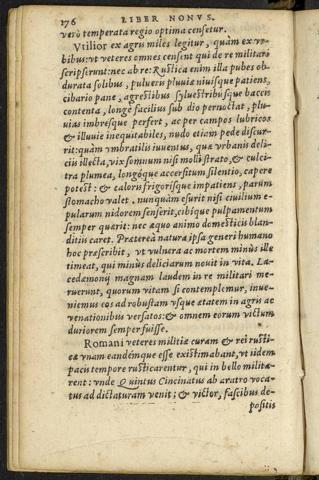 176 LIBER NONVS.
verò temperata regio optima censetur.
Vtilior ex agris miles legitur, quàm ex vr-
bibus: vt veteres omnes censent qui de re militari
scripserunt: nec ab re: Rustica enim illa pubes ob-
durata solibus, pulueris pluuiæ niuisque patiens,
cibario pane, agrestibus syluestribusque baccis
contenta, longè facilius sub dio pernoctat, plu-
uias imbresque perfert, ac per campos lubricos
& illuuie inequitabiles, nudo etiam pede discur-
rit: quàm vmbratilis iuuentus, quæ vrbanis deli-
ciis illecta, vix somnum nisi molli strato, & culci-
tra plumea, longóque accersitum silentio, capere
potest: & caloris frigorisque impatiens, parum
stomacho valet. nunquàm esurit nisi ciuilium e-
pularum nidorem senserit, cibique pulpamentum
semper quærit: nec æquo animo domesticis blan-
ditiis caret. Prætereà natura ipsa generi humano
hoc præscribit, vt vulnera ac mortem minùs ille
timeat, qui minùs deliciarum nouit in vita. La-
cedæmonij magnam laudem in re militari me-
ruerunt, quorum vitam si contemplemur, inue-
niemus eos ad robustam vsque ætatem in agris ac
venationibus versatos: & omnem eorum victum
duriorem semper fuisse.
Romani veteres militiæ curam & rei rusti-
cæ vnam eandémque esse existimabant, vt iidem
pacis tempore rusticarentur, qui in bello militа-
rent: vnde Quintus Cincinatus ab aratro voca-
tus ad dictaturam venit; & victor, fascibus de-
positis